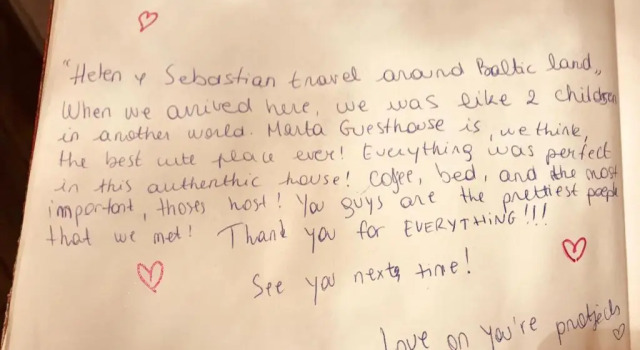 "Helen y Sebastian travel around Baltic land,,
When we arrived here, we was like 2 children
in another world. Marta Guesthouse is, we think,
the best cute place ever! Everything was perfect
in this authenthic house! Coffee, bed, and the most
important, thoses host! You guys are the prettiest people
that we met! Thank you for EVERYTHING!!!
See you next time!
Love on you're projects